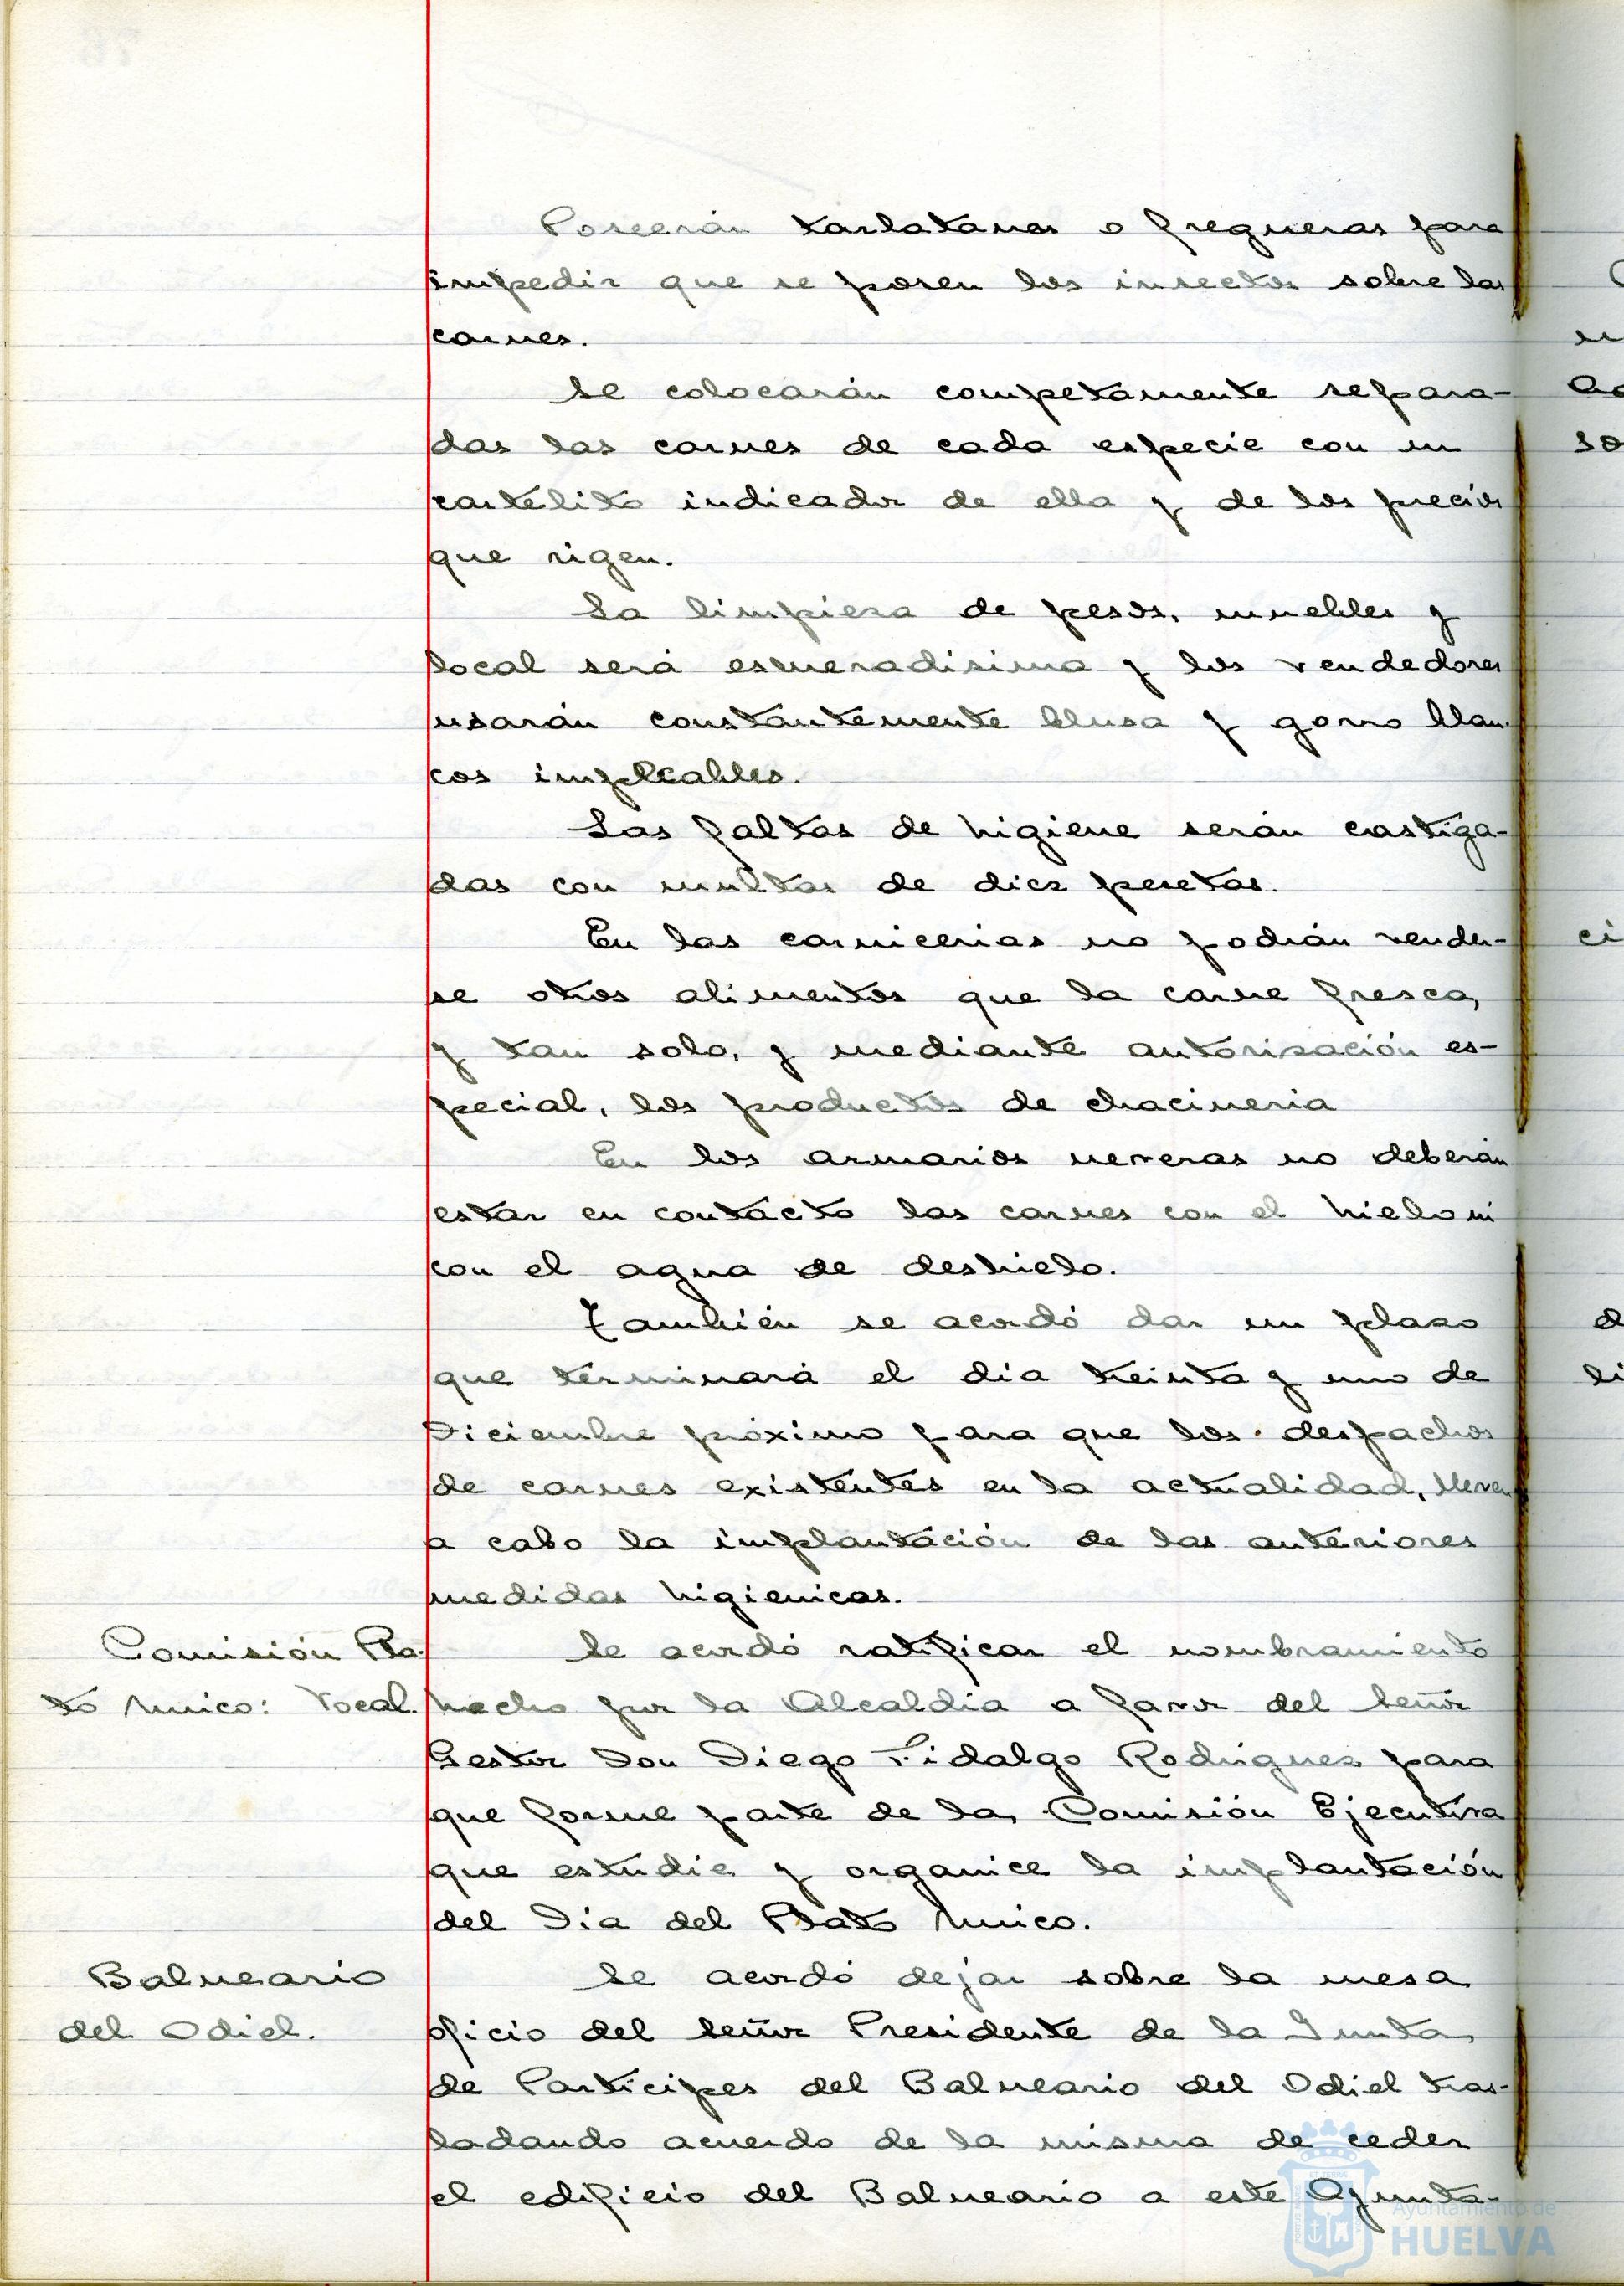 Poseerán tarlatanas o fregueras para
impedir que se posen los insectos sobre las
carnes.
Se colocarán competamente separa-
das las carnes de cada especie con un
cartelito indicador de ella y de los precios
que rigen.
La limpieza de pesos, muebles y
local será esmeradisima y los vendedores
usarán constantemente blusa y gorro blan-
cos impecables.
Las faltas de higiene serán castiga-
das con multas de diez pesetas.
En las carnicerias no podrán vender-
se otros alimentos que la carne fresca,
y tan solo, y mediante autorización es-
pecial, los productos de chacineria
En los armarios neveras no deberán
estar en contacto las carnes con el hielo ni
con el agua de deshielo.
También se acordó dar un plazo
que terminará el dia treinta y uno de
Diciembre próximo para que los despachos
de carnes existentes en la actualidad, lleven
a cabo la implantación de las anteriores
medidas higienicas.
Comisión Pla-
to Unico: Vocal.
Se acordó ratificar el nombramiento
hecho por la Alcaldia a favor del Señor
Gestor Don Diego Fidalgo Rodriguez para
que forme parte de la Comisión Ejecutiva
que estudie y organice la implantación
del Dia del Plato Unico.
Balneario
del Odiel.
Se acordó dejar sobre la mesa
oficio del Señor Presidente de la Junta
de Participes del Balneario del Odiel tras-
ladando acuerdo de la misma de ceder
el edificio del Balneario a este Ayunta-
Ayuntamiento de
HUELVA